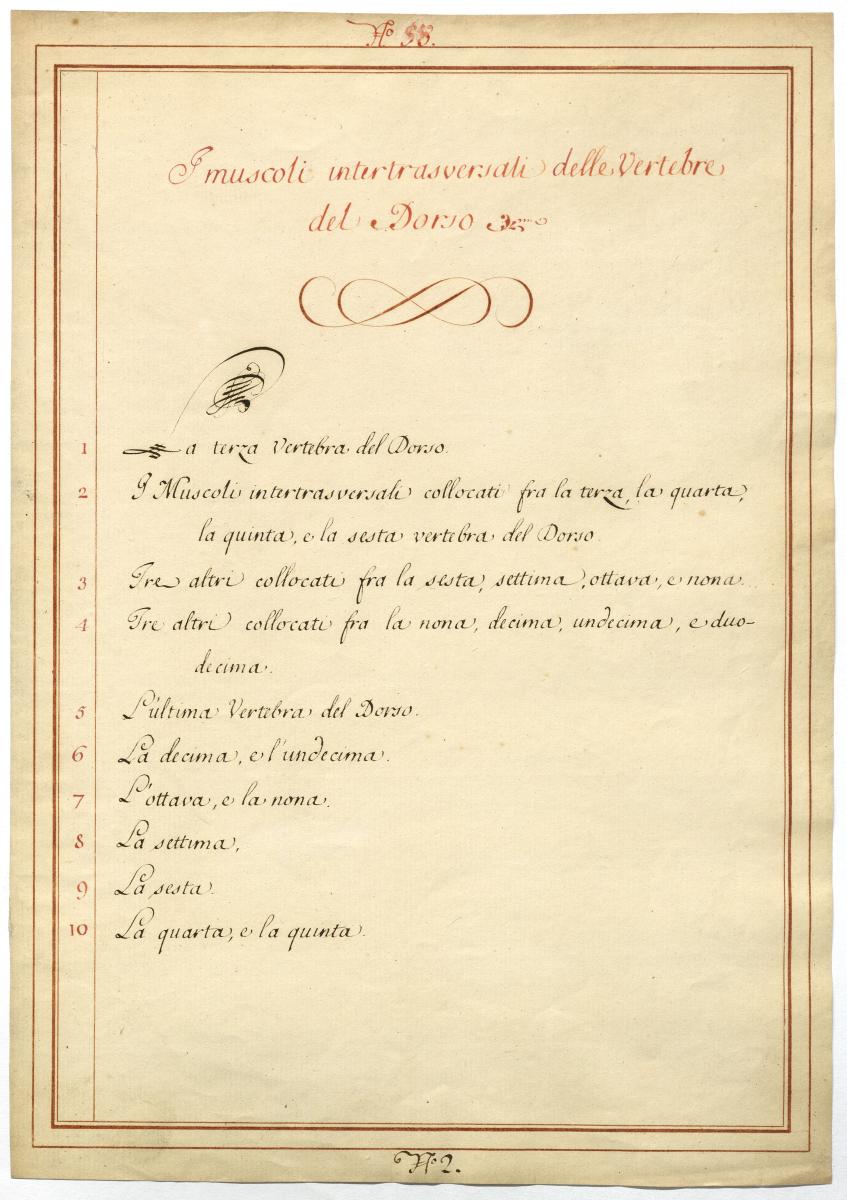 No 38.
I muscoli intertrasversali delle Vertebre
del Dorso
1 La terza vertebra del Dorso.
2 I Muscoli intertrasversali collocati fra la terza, la quarta,
la quinta, e la sesta vertebra del Dorso.
3 Tre altri collocati fra la sesta, settima, ottava, e nona.
4 Tre altri collocati fra la nona, decima, undecima, e duo-
decima.
5 L'ultima Vertebra del Dorso.
6 La decima, e l'undecima.
7 L'ottava, e la nona.
8 La settima,
9 La sesta.
10 La quarta, e la quinta.
No 2.